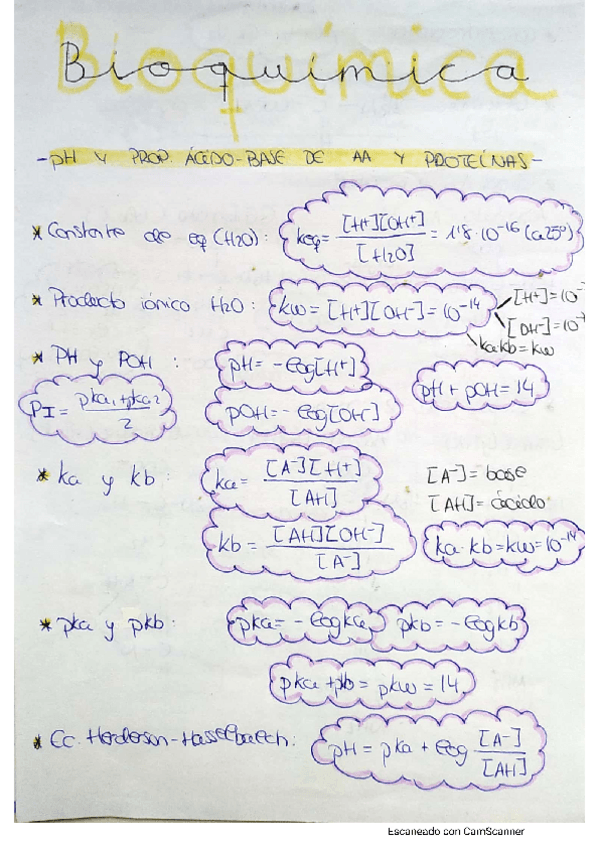 Bioquímica
- pH y PROP. ÁCIDO-BASE DE AA Y PROTEÍNAS -
* Constante de eq (H2O): keq = [H+][OH+] / [H2O] = 1'8·10^-16 (a 25º)
* Producto iónico H2O: kw = [H+][OH-] = 10^-14
[H+] = 10^-7
[OH-] = 10^-7
ka·kb = kw
* PH y POH: pH = -log[H+]
pH + pOH = 14
PI = pka1 + pka2 / 2
pOH = -log[OH-]
* ka y kb: ka = [A-][H+] / [AH]
[A-] = base
[AH] = ácido
kb = [AH][OH-] / [A-]
ka·kb = kw = 10^-14
* pka y pkb: pka = -logka pkb = -logkb
pka + pkb = pkw = 14
* Ec. Henderson-Hasselbalch: pH = pka + log [A-] / [AH]
Escaneado con CamScanner